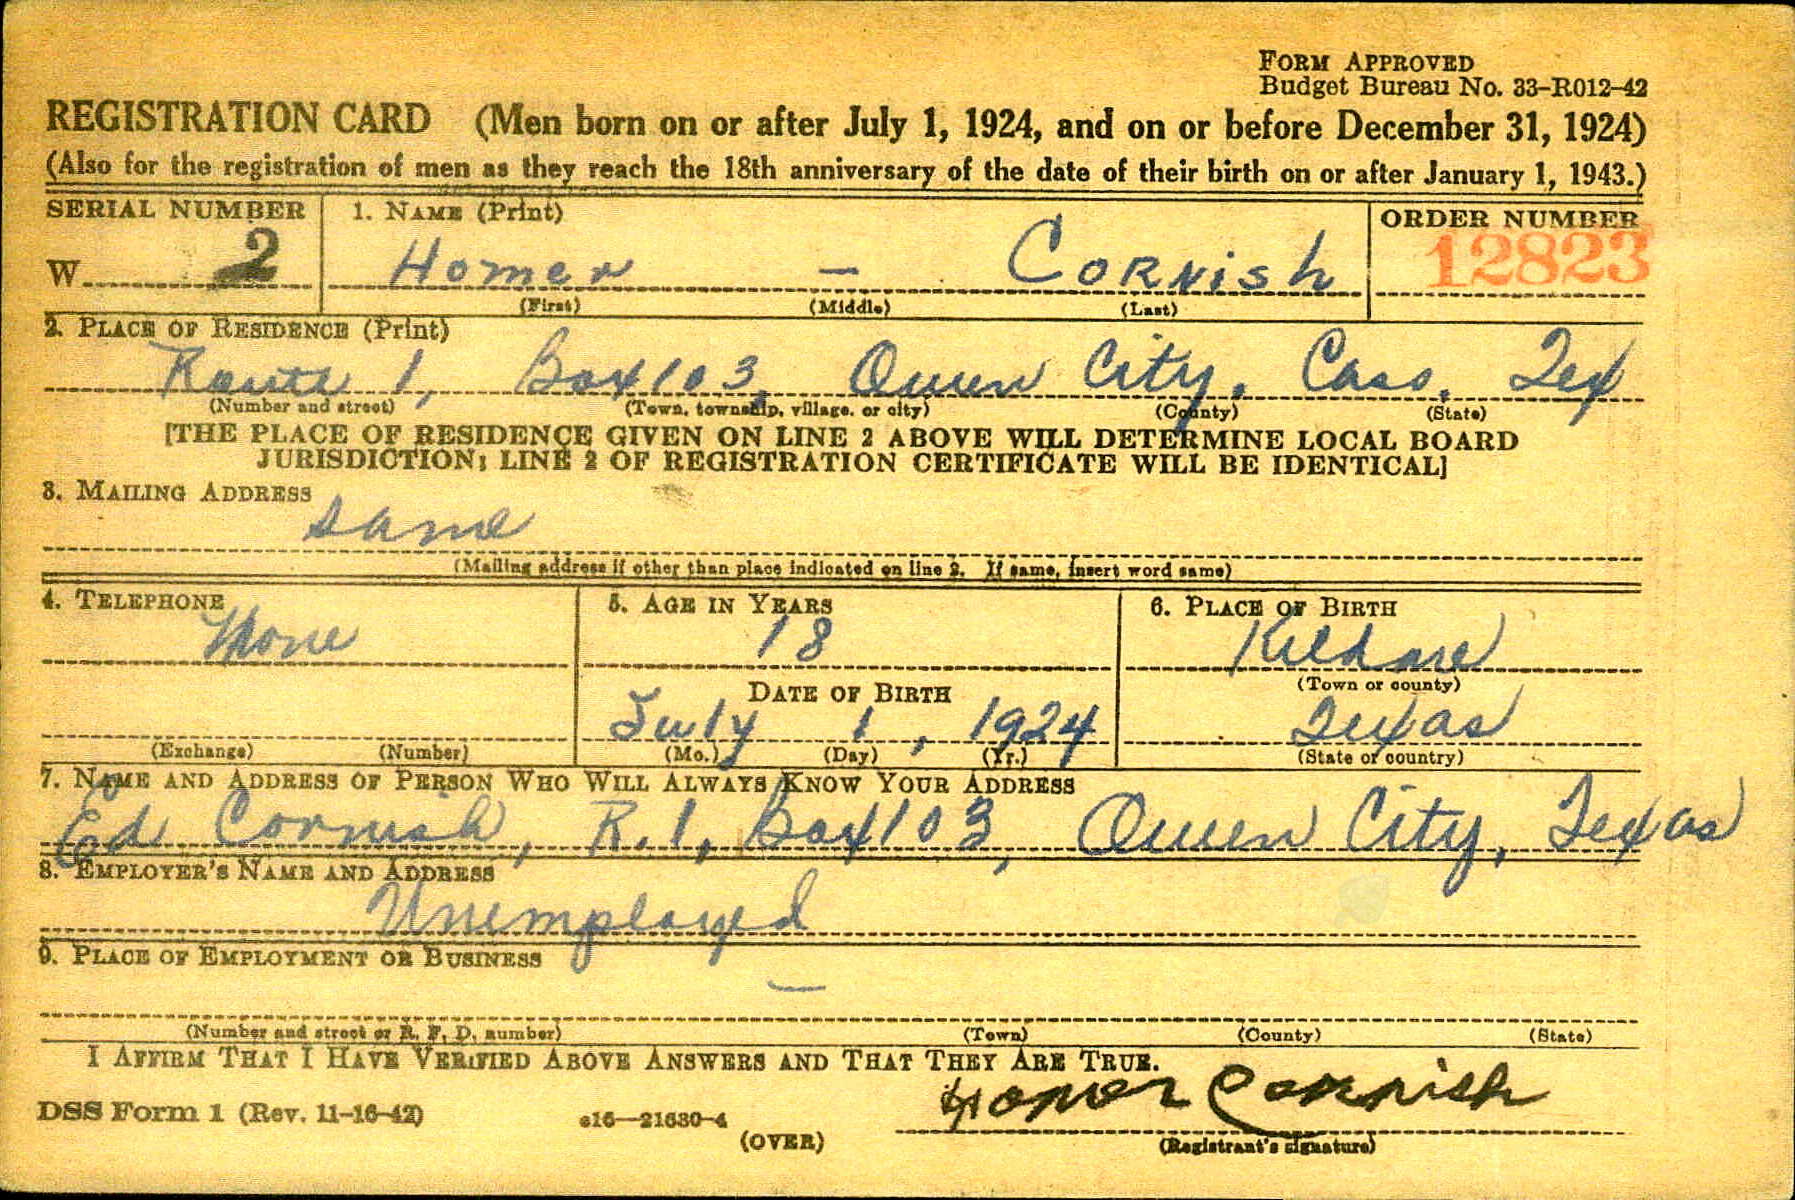 FORM APPROVED
Budget Bureau No. 33-R012-42
REGISTRATION CARD (Men born on or after July 1, 1924, and on or before December 31, 1924)
(Also for the registration of men as they reach the 18th anniversary of the date of their birth on or after January 1, 1943.)
SERIAL NUMBER 1. NAME (Print) ORDER NUMBER
W 2 Homer — Cornish 12823
(First) (Middle) (Last)
2. PLACE OF RESIDENCE (Print)
Route 1, Box 103, Queen City, Cass, Tex
(Number and street) (Town, township, village, or city) (County) (State)
[THE PLACE OF RESIDENCE GIVEN ON LINE 2 ABOVE WILL DETERMINE LOCAL BOARD
JURISDICTION; LINE 2 OF REGISTRATION CERTIFICATE WILL BE IDENTICAL]
3. MAILING ADDRESS
Same
(Mailing address if other than place indicated on line 2. If same, insert word same)
4. TELEPHONE 5. AGE IN YEARS 6. PLACE OF BIRTH
None 18 Kildare
(Town or county)
DATE OF BIRTH
July 1, 1924 Texas
(Exchange) (Number) (Mo.) (Day) (Yr.) (State or country)
7. NAME AND ADDRESS OF PERSON WHO WILL ALWAYS KNOW YOUR ADDRESS
Ed Cornish, R. 1, Box 103, Queen City, Texas
8. EMPLOYER'S NAME AND ADDRESS
Unemployed
9. PLACE OF EMPLOYMENT OR BUSINESS
—
(Number and street or R. F. D. number) (Town) (County) (State)
I AFFIRM THAT I HAVE VERIFIED ABOVE ANSWERS AND THAT THEY ARE TRUE.
Homer Cornish
DSS Form 1 (Rev. 11-16-42) e16—21630-4
(OVER) (Registrant's signature)